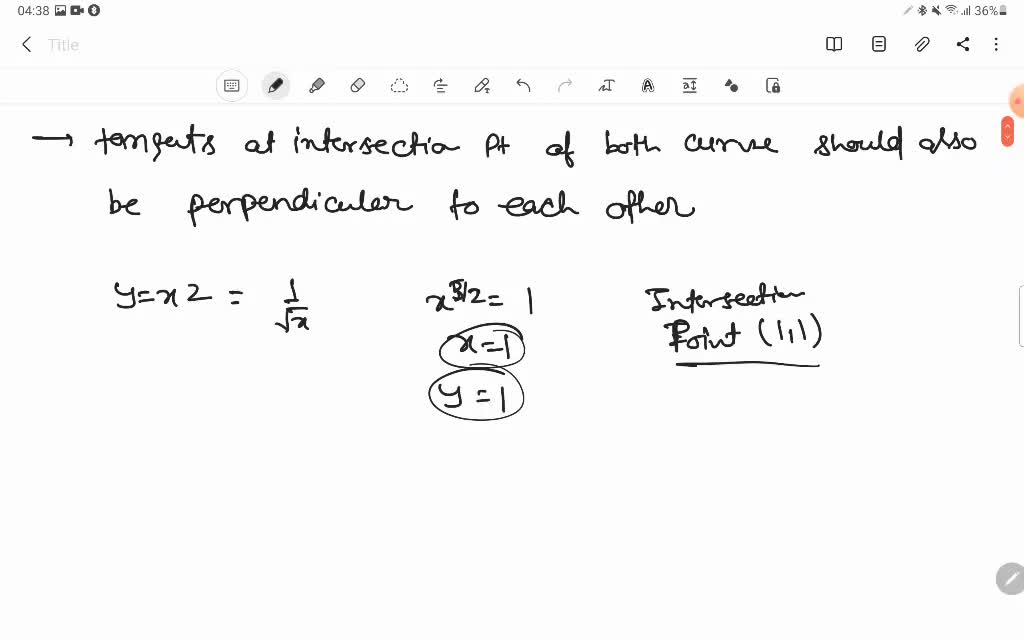 04:38 36%
Title
→ tangents at intersection Pt of both curve should also
be perpendicular to each other
y=x2 = 1/√x
x^5/2 = 1
x=1
y=1
Intersection
Point (1,1)